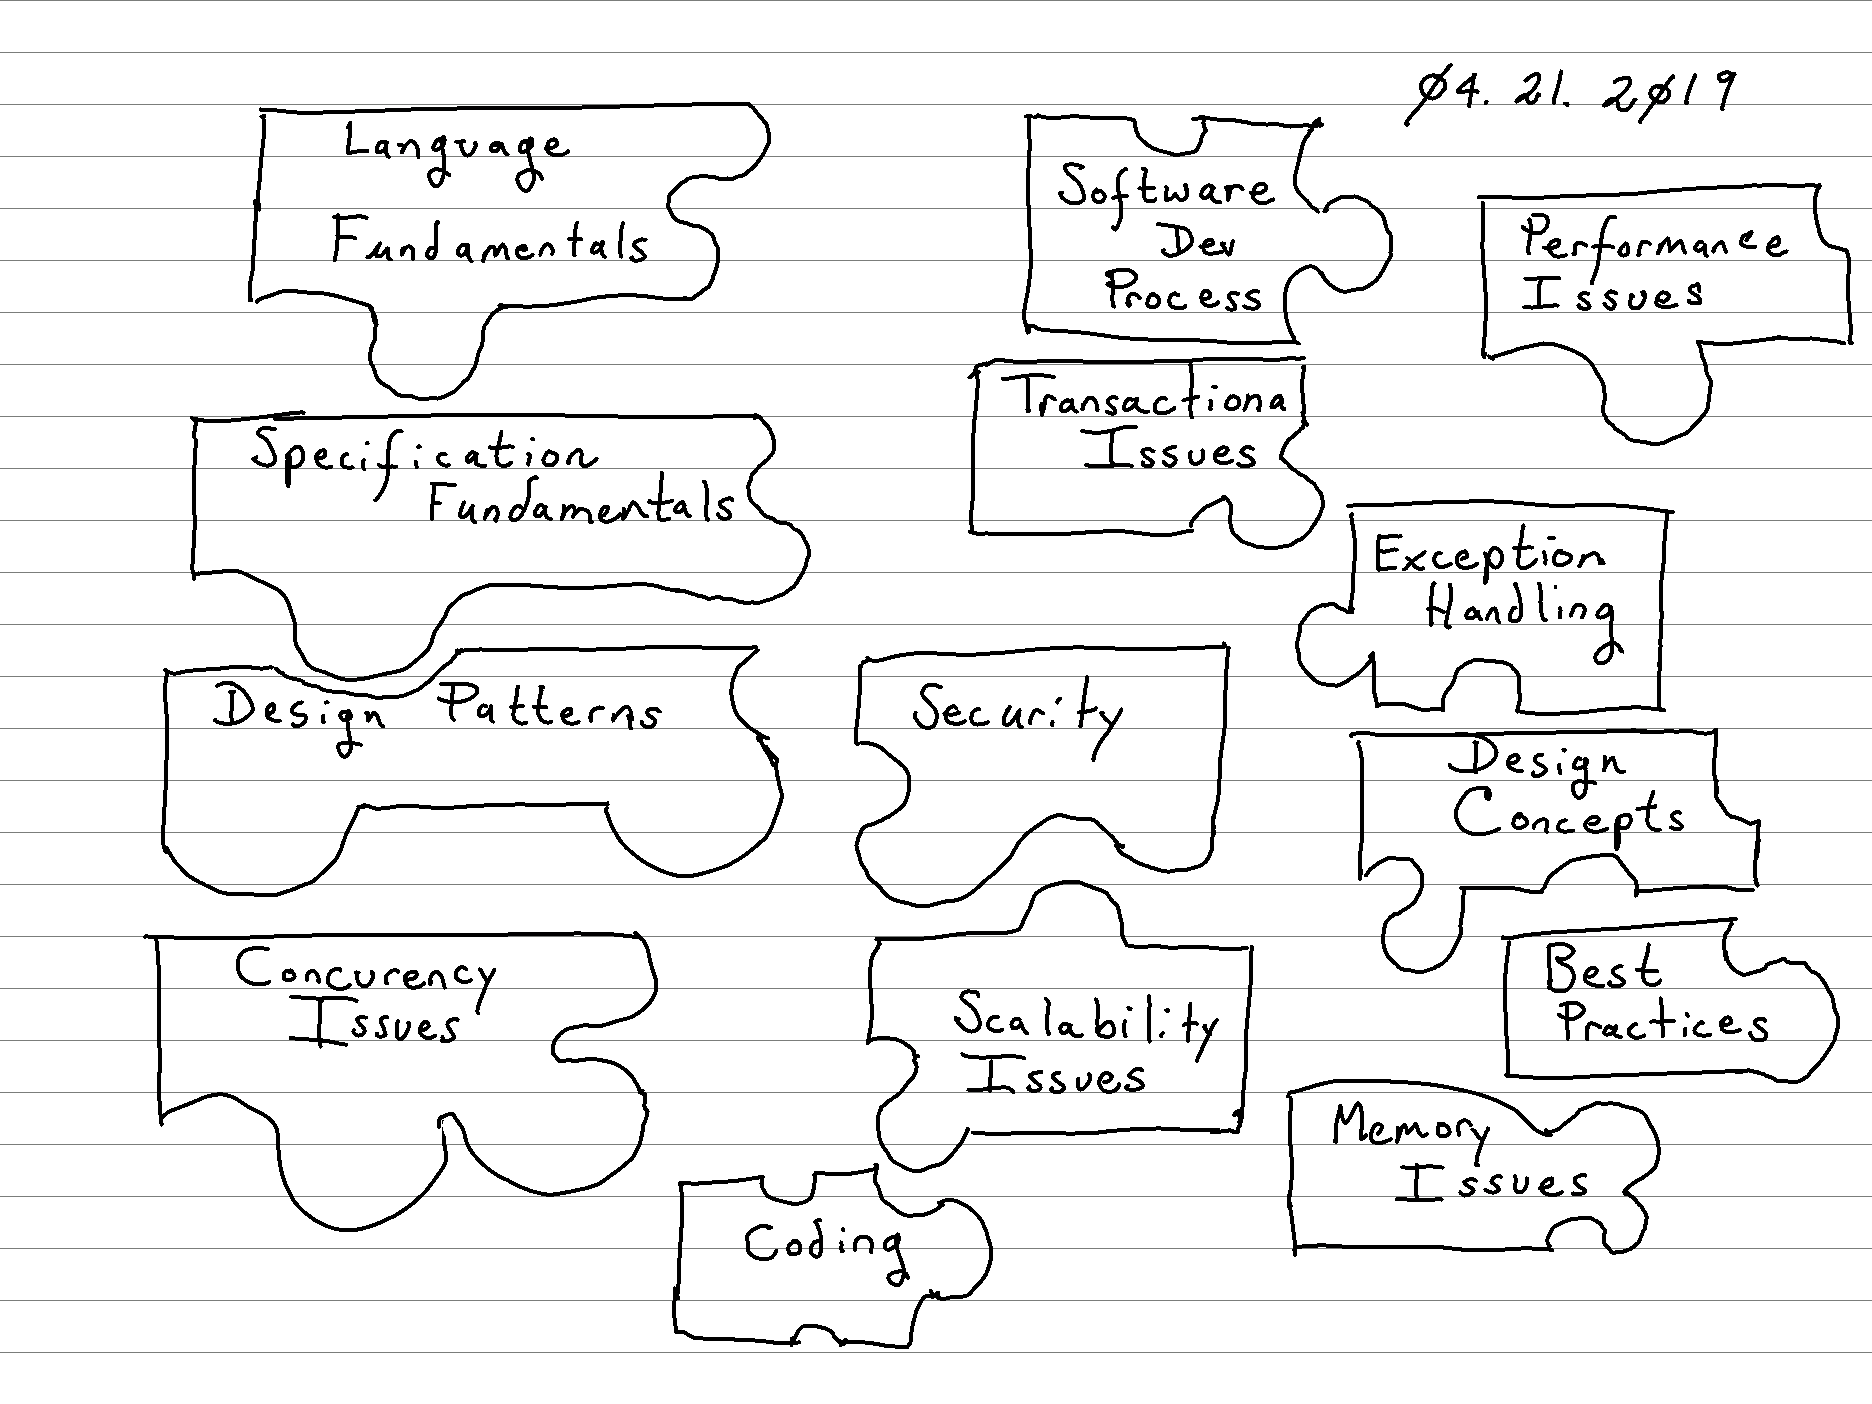 04. 21. 2019
Language
Fundamentals
Software
Dev
Process
Performance
Issues
Transactional
Issues
Specification
Fundamentals
Exception
Handling
Design Patterns
Security
Design
Concepts
Concurency
Issues
Scalability
Issues
Best
Practices
Memory
Issues
Coding